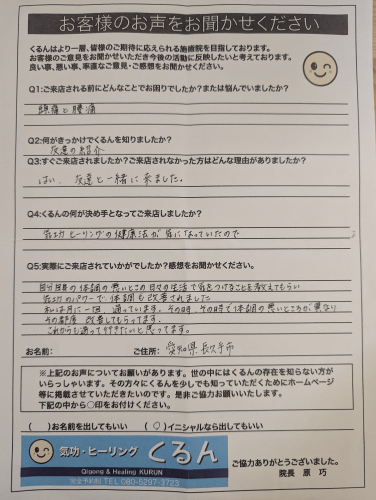 お客様のお声をお聞かせください
くるんはより一層、皆様のご期待に応えられる施療院を目指しております。
お客様のご意見をお聞かせいただき今後の活動に反映したいと考えております。
良い事、悪い事、率直なご意見・ご感想をお聞かせください。
Q1:ご来店される前にどんなことでお困りでしたか?または悩んでいましたか?
頭痛と腰痛
Q2:何がきっかけでくるんを知りましたか?
友達の紹介
Q3:すぐご来店されましたか?ご来店されなかった方はどんな理由がありましたか?
はい、友達と一緒に来ました。
Q4:くるんの何が決め手となってご来店しましたか?
気功ヒーリングの健康法が気になっていたので
Q5:実際にご来店されていかがでしたか?感想をお聞かせください。
自分自身の体調の悪いとこの日々の生活で気をつけることを教えてもらい
気功のパワーで体調も改善されました
私は月に一回、通っています。その時、その時で体調の悪いところが異なり
その都度、改善してもらってます。
これからも通って行きたいと思ってます。
お名前: ご住所: 愛知県長久手市
※上記のお声についてお願いがあります。世の中にはくるんの存在を知らない方が
いらっしゃいます。その方々にくるんを少しでも知っていただくためにホームページ
等に掲載させていただきたいのです。是非ご協力お願いいたします。
下記の中から〇印をお付けください。
( )お名前を出してもいい (〇)イニシャルなら出してもいい
気功・ヒーリング くるん
Qigong & Healing KURUN
完全予約制 TEL 080-5297-3723
ご協力ありがとうございました。
院長 原 巧